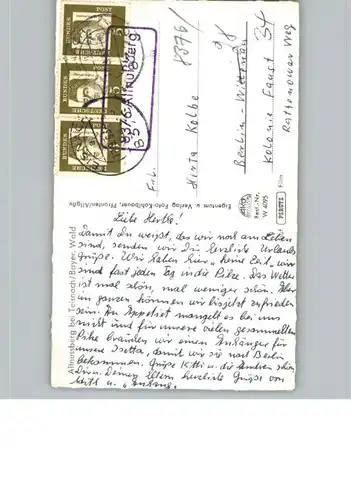 Allmusberg bei Teisnach/Bayer. Wald
Liebe Hertha!
Damit Du weißt, das wir noch am Leben
sind, senden wir Dir herzliche Urlaubs
grüße. Wir haben hier "keine Zeit", wir
sind fast jeden Tag in die Pilze. Das Wetter
ist mal schön, mal weniger schön. Aber
im ganzen können wir bis jetzt zufrieden
sein. An Appetit mangelt es bei uns
nicht und für unsere vielen gesammelten
Pilze brauchen wir einen Anhänger für
unsere Isetta, damit wir sie nach Berlin
bekommen. Grüße Kitti u. die andren schön
Dir u. Deinen Eltern herzliche Grüße von
u. "
Eigentum u. Verlag Foto-Kohlbauer, Pfronten/Allgäu
Best.-Nr.
W 4095
PERUTZ
Film
DEUTSCHE BUNDESPOST
5
DEUTSCHE BUNDESPOST
5
DEUTSCHE BUNDESPOST
5
8376 Allmusberg
8376/
Frl.
Herta Kolbe
Berlin-Wittenau
Kolonie Faust 34
Rathenower Weg